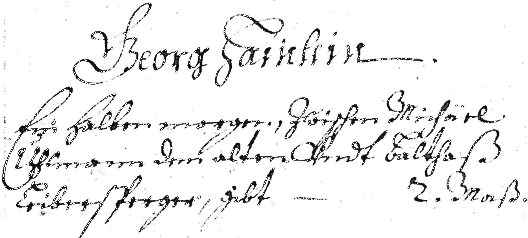 Georg Hainlin.
Ein halben morgen, Zwischen Michael
Uhlmann dem alten Vndt Balthaß
Leibersperger, gibt — 2. Maß.